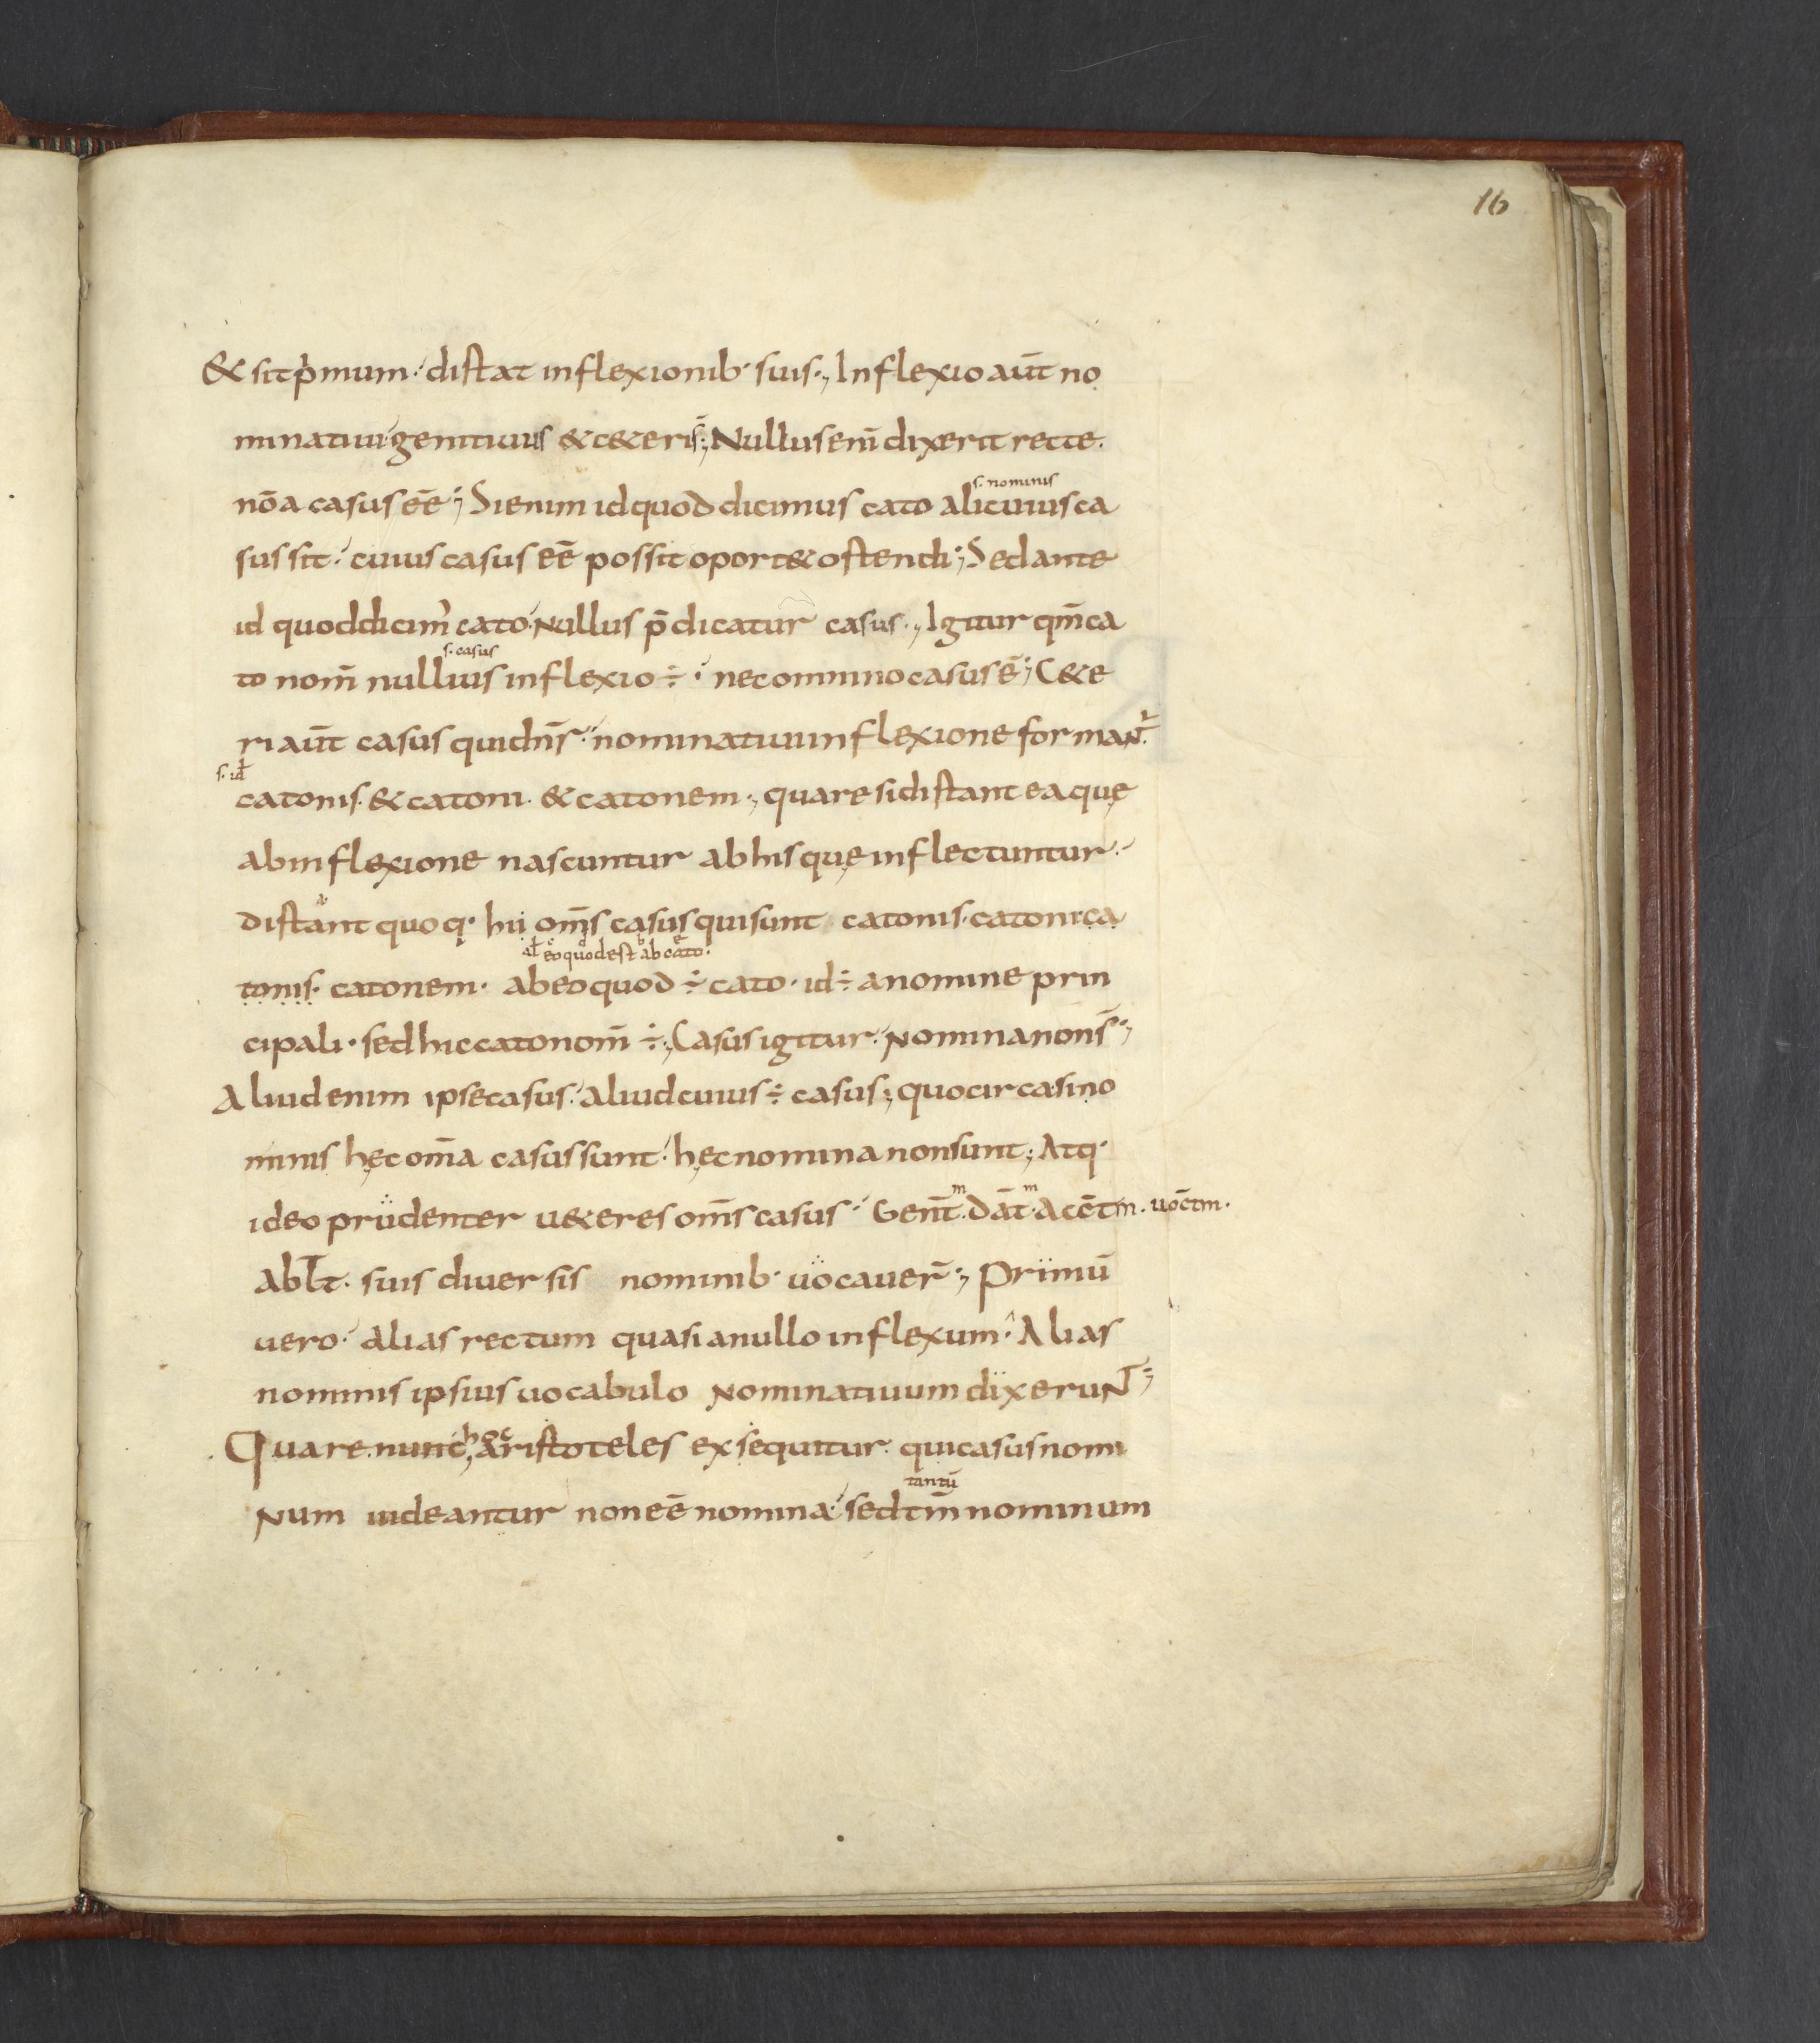 16
& sit p̄mum· distat inflexionib· suis·, Inflexio aūt no
minatiui genitiuus & c&eris̄; Nullus enī dixerit recte·
nōa casus eē; Si enim id quod dicimus cato alicuius ca
s· nominis
sus sit· cuius casus eē possit oport& ostendi; Sed ante
id quod dicim' cato· Nullus p̄dicatur casus·, Igitur qm̄ ca
s· casus
to nom̄ nullius inflexio ÷· nec omnino casus ē; C&e
ri aūt casus quidn̄s· nominatiui inflexione formant̄
s· id
catonis· & catoni· & catonem·, quare si distant ea quę
ab inflexione nascuntur ab his quę inflectuntur·
distant quoq· hii om̄s casus qui sunt catonis· catoni· ca
al̄ eo quod est ab cato·
tonis· catonem· ab eo quod ÷ cato· id ÷ a nomine prin
cipali· sed hic cato nom̄ ÷; Casus igitur· Nomina nons̄;
Aliud enim ipse casus· aliud cuius ÷ casus; quocirca si no
minis hęc om̄a casus sunt· hęc nomina non sunt; Atq·
ideo prudenter u&eres om̄s casus· Genīt m· Dāt m· Acc̄tm· uoc̄tm·
Abl̄t· suis diuersis nominib· uocauer̄; Primū
uero· alias rectum quasi a nullo inflexum· Alias
nominis ipsius uocabulo Nominatiuum dixeruNT;
Quare nunc hoc aristoteles exsequitur· qui casus nomi
Num uideantur non eē nomina· sed tm̄ nominum
tantū